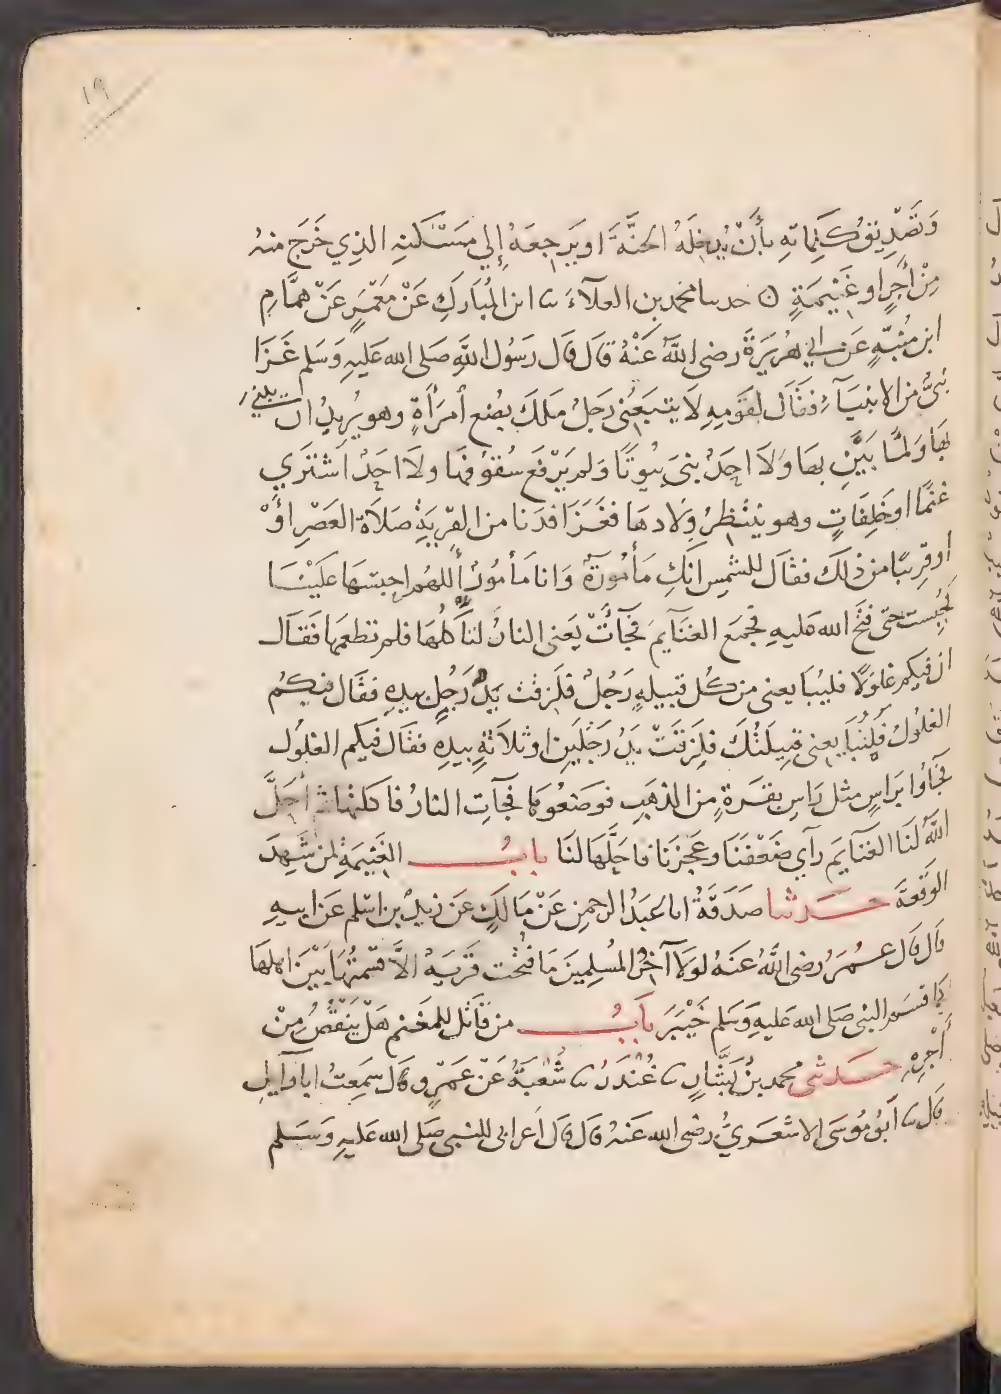 ١٩
وَتَصْدِيقُ كَلِمَاتِهِ بأَنْ يُدخِلَهُ الجنَّةَ او يَرجِعَهُ إِلي مَسْكَنِهِ الذِي خَرَج منهُ
مِنْ أَجرٍ او غَنِيمَةٍ ۞ حدثنا محمد بن العلآءَ ثنا ابن المُبَارَكِ عَنْ مَعْمَرٍ عَنْ همَّامِ
ابن مُنَبِّهٍ عَن ابي هُرَيْرَةَ رضى اللهُ عَنْهُ قَالَ قَالَ رَسُول اللَّهِ صَلى الله عَلَيهِ وَسَلم غَزَا
نَبيٌّ من الانبيَآءِ فَقَالَ لقَومِهِ لَا يتبَعْنِى رَجلُ مَلَكَ بضعَ أمرَأَةٍ وهو يُرِيدُ ان يبني
بهَا وَلمَّا يَبْنِ بهَا وَلَا احدُ بنىَ بيُوتًا وَلم يَرْفَع سُقُوفهَا ولَا احَدُ اَشتَرَي
غنمًا او خَلِفَاتٍ وهو ينتظِرُ وِلَادهَا فغَزَا فدَنا من القَريَةِ صَلَاةَ العَصْرِ أَوْ
او قرِيبًا من ذلكَ فقَالَ للشمسِ انكِ مَأمُورَةٌ وَانا مَأمُورٌ أللهُم احبسْهَا عَلَيْنَا
فَحُبِست حتى فتَحَ الله عَليهِ فجمَع الغنَآيمَ فجَآئَتْ يَعنى النارُ لتَأكُلهَا فلم تطعمهَا فَقَالَ
ان فيكم غلُولًا فليبَا يعنى من كُل قبيلهٍ رَجُلُ فلَزقت يَدُ رَجُلٍ بيدِهِ فقَالَ فيكمُ
الغلولُ فَلِتُبَايعنى قبِيلَتُكَ فلِزقَتْ يَدُ رَجُلَيِن او ثلَاثَةٍ بيدِهِ فقَالَ فيكم الغلُول
فجَآءُوا برَاسٍ مثل رَاسِ بقَرَةٍ من الذهَبِ فوضعُوهَا فجَآتِ النارُ فاكلتهَا ثم أحَلَّ
اللهُ لنَا الغنَآيَم رآي ضَعْفَنَا وعَجْزَنَا فاحلَّهَا لنَا بابُ الغَنيمَةِ لمن شَهِدَ
الوَقعَةَ حَدثنا صَدَقَةُ انا عَبدُ الرحمنِ عَنْ مَالكٍ عَن زَيدِ بن اسْلم عَن ابيهِ
قَال قَال عُمَرُ رضى اللَّهُ عَنهُ لولَا آخرُ المُسلِمِينَ مَا فُتحَت قَريَةُ الاَّ قسَمتُهَا بَيْنَ اهلهَا
كمَا قسَمَ النبى صَلى الله عَليهِ وَسَلم خَيْبَرَ بَابُ من قَاتَل للمغنم هَلْ يَنقُصُ مِنْ
أَجرِهِ حَدثنى محمد بنُ بَشَّارٍ ثنا غُندَرُ ثنا شُعْبَةُ عَنْ عَمرٍو قَال سَمِعتُ ابا وَآيلٍ
قَال ثنا أَبُو مُوسَى الاشعَريُّ رضى الله عَنهُ قَالَ قَالَ أعرَابى للنبى صَلى الله عَليهِ وَسَلم